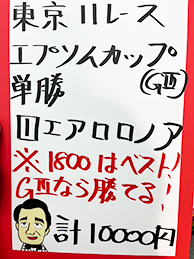 東京11レース
エプソムカップ
(GⅢ)
単勝
11エアロロノア
※1800はベスト!
GⅢなら勝てる!
計10000円